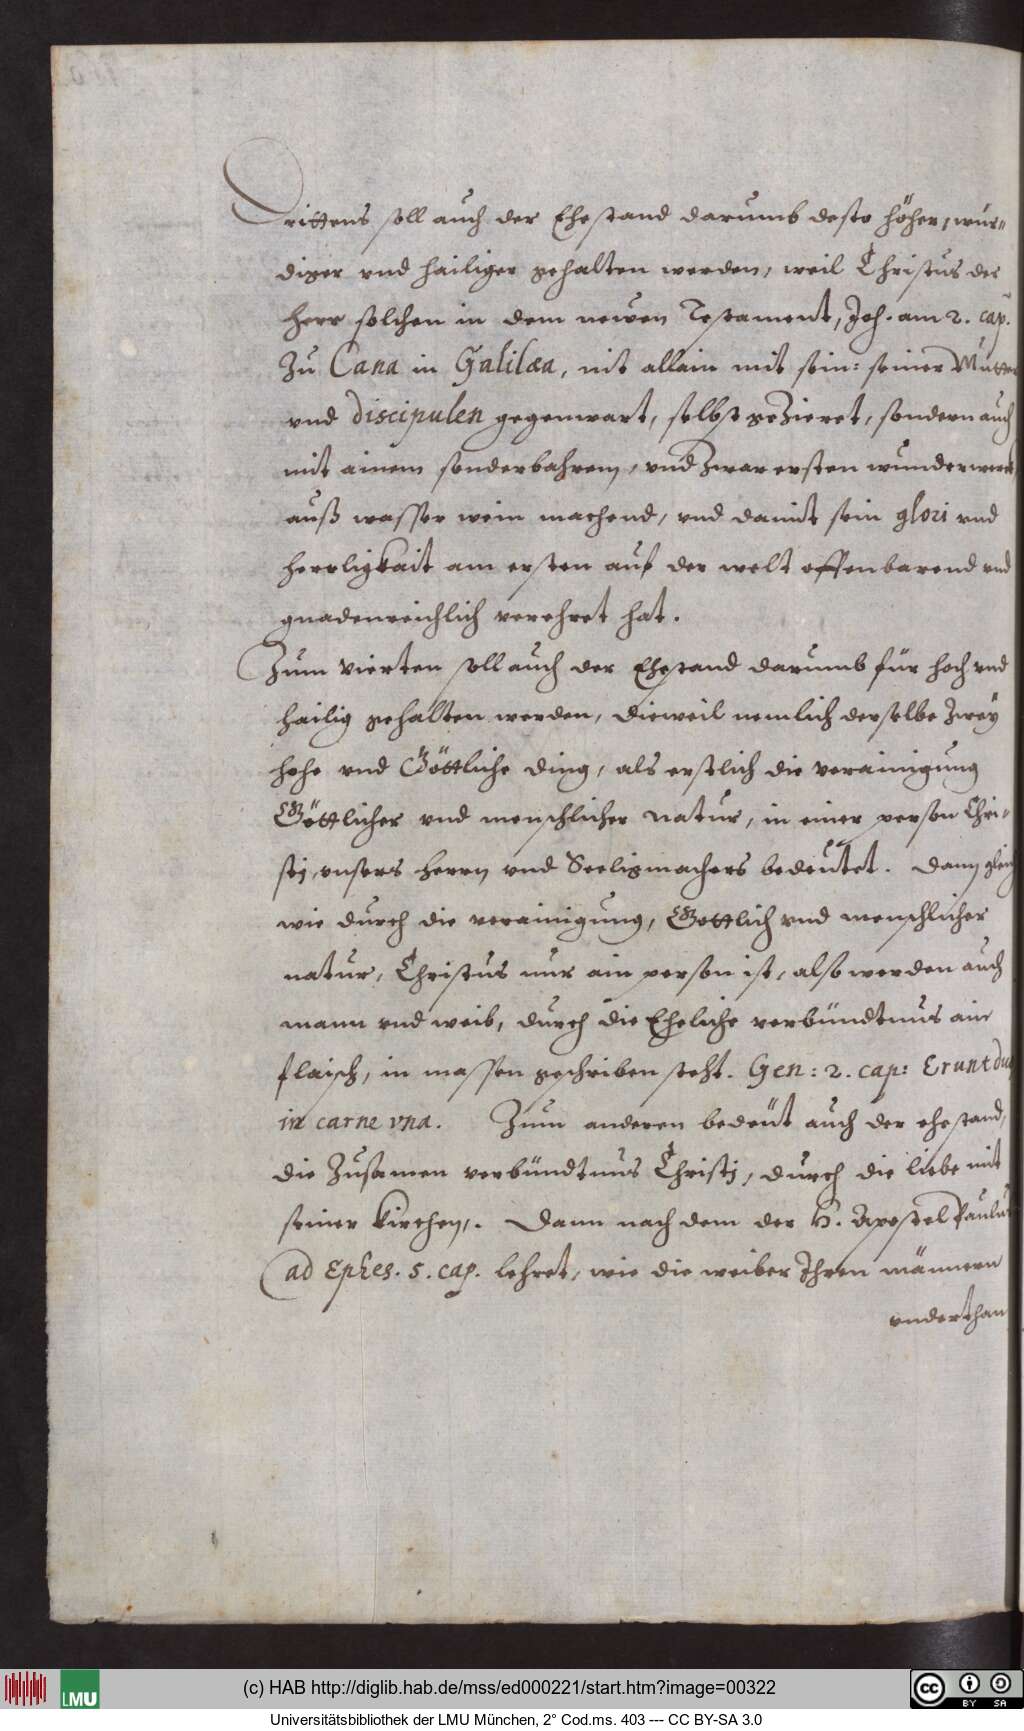 Drittens soll auch der Ehestand darumb desto höher, wür-
diger vnd hailiger gehalten werden, weil Christus der
Herr solchen in dem newen Testament, Joh. am 2. cap.
Zu Cana in Galilæa, nit allain mit sein: seiner Mutter
vnd discipulen gegenwart, selbst gezieret, sondern auch
mit ainem sonderbahrem, vnd zwar ersten wunderwerck,
auß wasser wein machend, vnd damit sein glori vnd
herrligkait am ersten auf der welt offenbarend vnd
gnadenreichlich verehret hat.
Zum vierten soll auch der Ehestand darumb für hoch vnd
hailig gehalten werden, dieweil nemlich derselbe zwey
hohe vnd Göttliche ding, als erstlich die verainigung
Göttlicher vnd menschlicher natur, in einer person Chri-
stj, vnsers Herrn vnd Seeligmachers bedeutet. Dann gleich
wie durch die verainigung, Gottlich vnd menschlicher
natur, Christus nur ain person ist, also werden auch
mann vnd weib, durch die Eheliche verbündtnus ain
flaisch, in massen geschriben steht. Gen: 2. cap: Erunt duo
in carne vna. Zum anderen bedeüt auch der ehestand,
die Zusamen verbündtnus Christj, durch die liebe mit
seiner Kirchen,. Dann nach dem der H. Apostel Paulus
ad Ephes. 5. cap. lehret, wie die weiber Ihren männern
vnderthan
(c) HAB http://diglib.hab.de/mss/ed000221/start.htm?image=00322
LMU
CC BY SA
Universitätsbibliothek der LMU München, 2° Cod.ms. 403 --- CC BY-SA 3.0